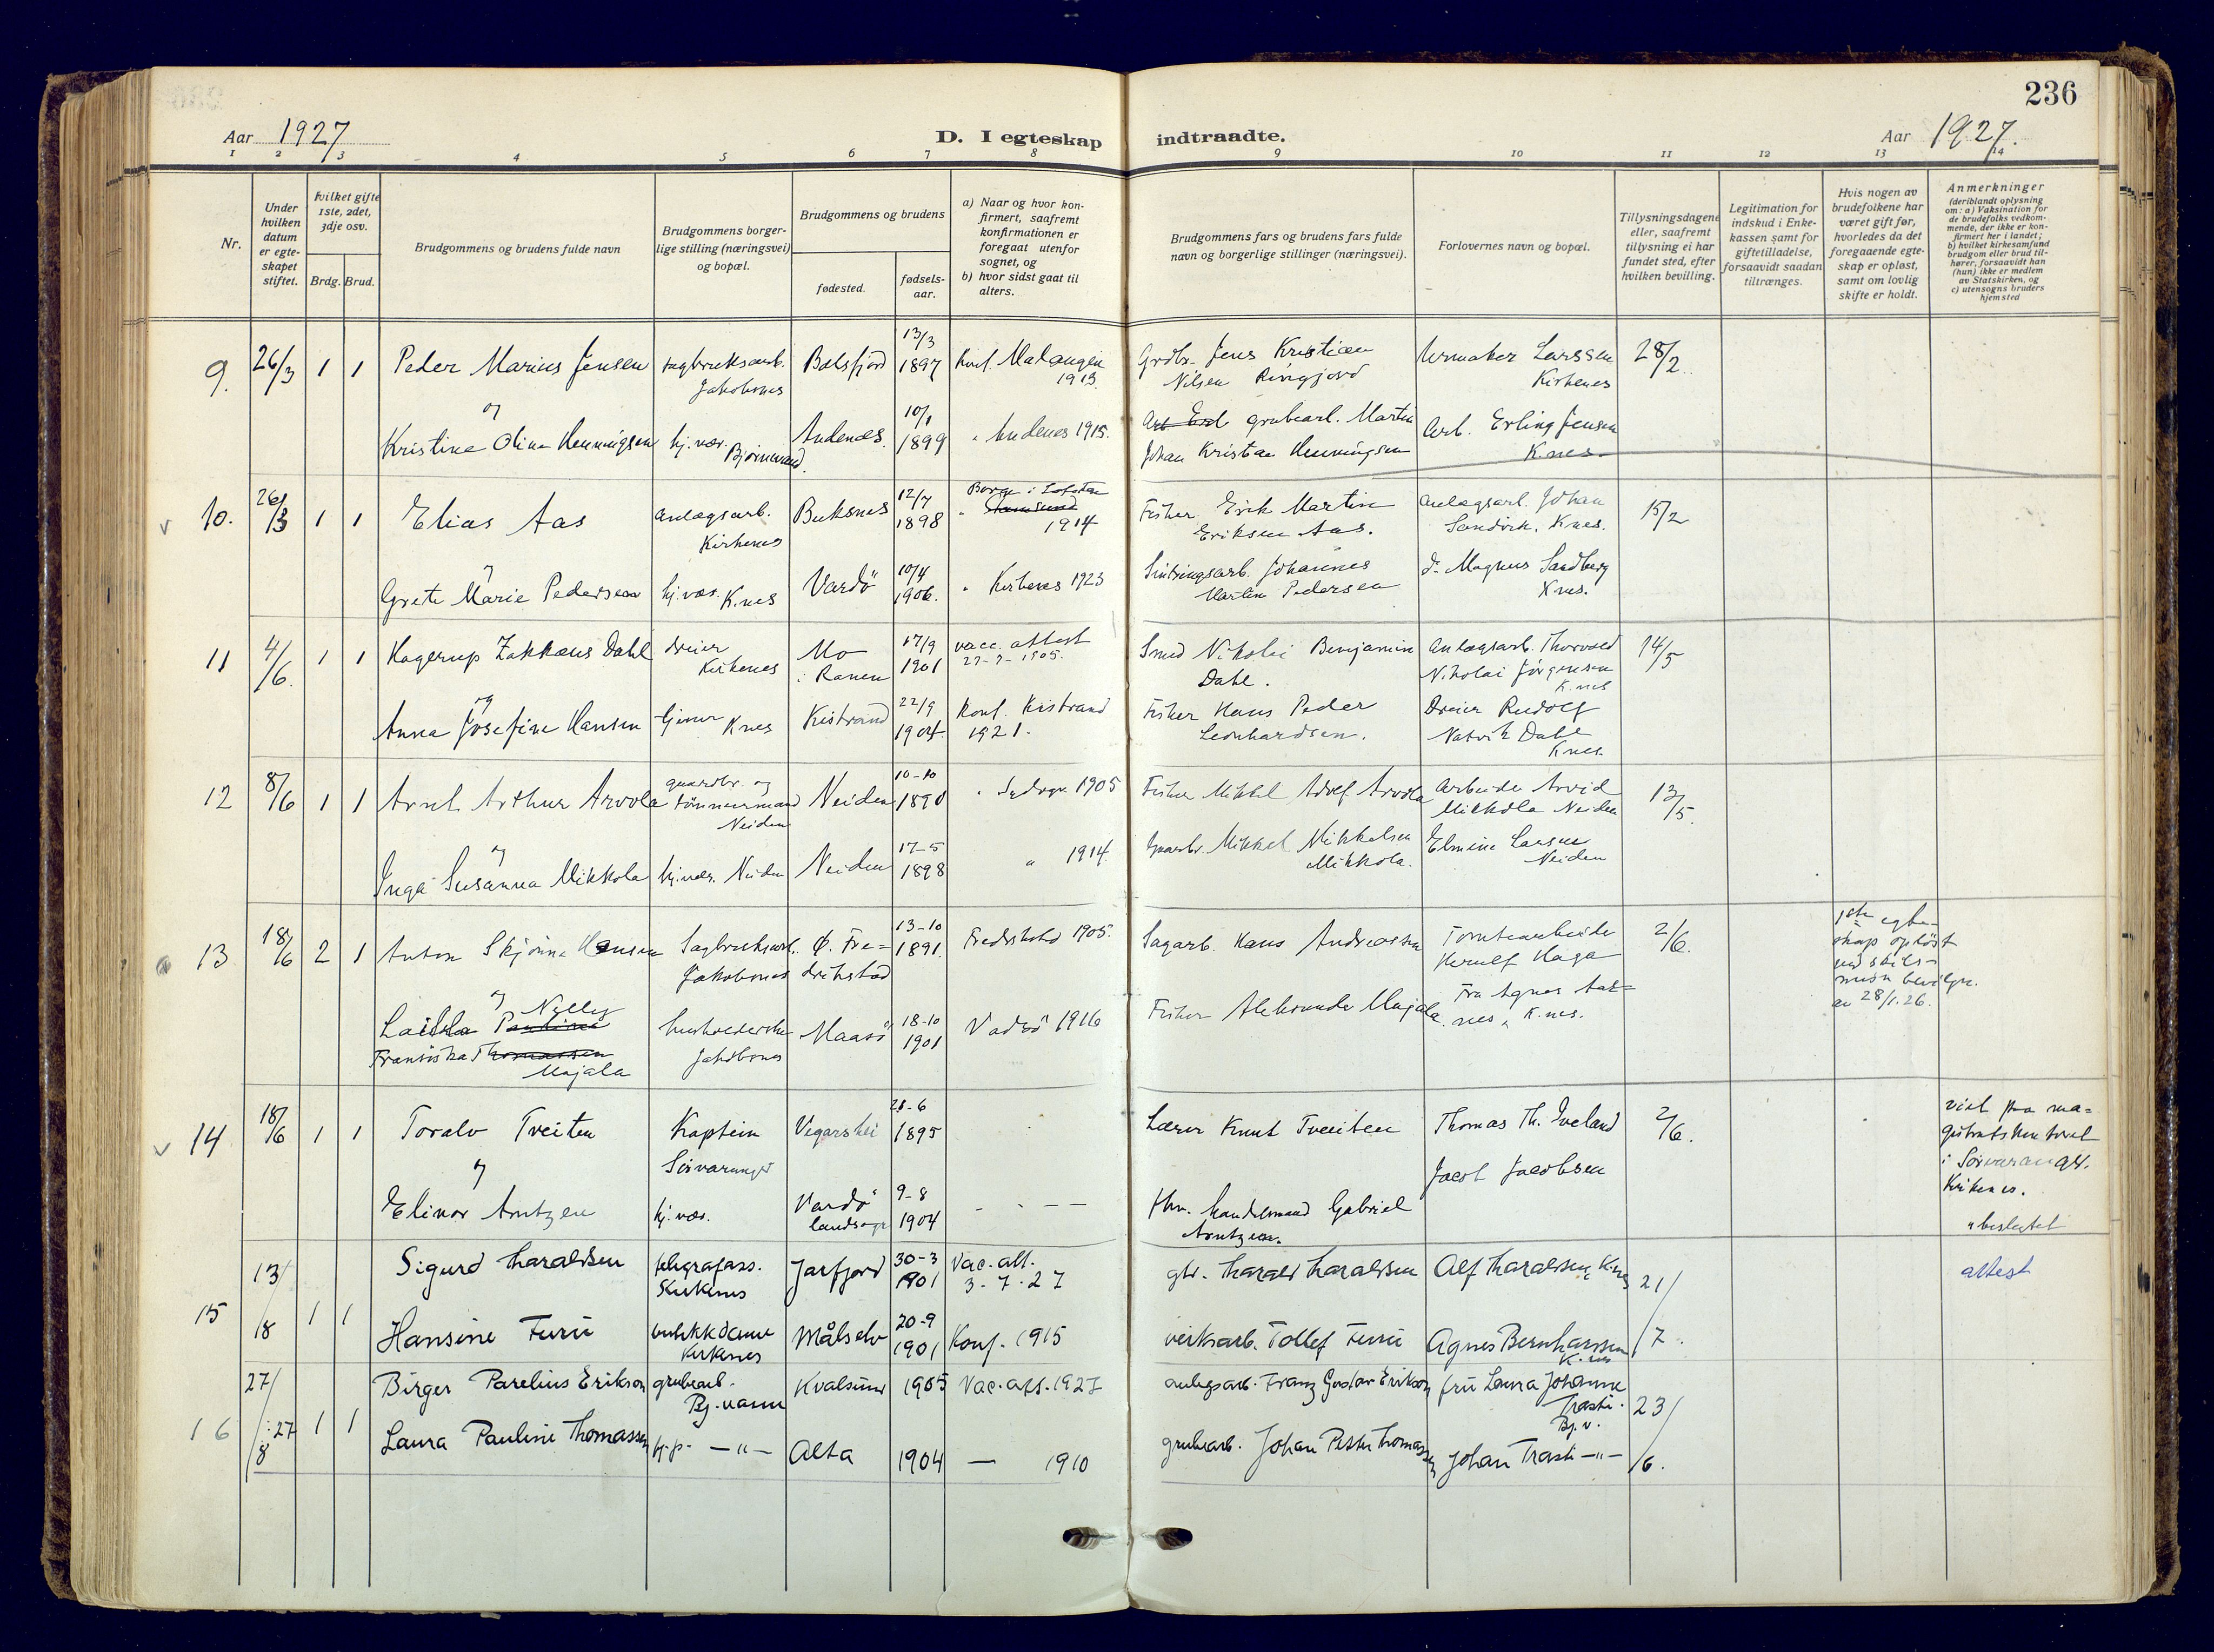 236
Aar 1927
D. I egteskap indtraadte.
Aar 1927.
1 2 3 4 5 6 7 8 9 10 11 12 13 14
Nr.
Under hvilken datum er egteskapet stiftet.
Hvilket gifte 1ste, 2det, 3dje osv.
Brdg. Brud.
Brudgommens og brudens fulde navn
Brudgommens borgerlige stilling (næringsvei) og bopæl.
Brudgommens og brudens
fødested.
fødselsaar.
a) Naar og hvor konfirmert, saafremt konfirmationen er foregaat utenfor sognet, og
b) hvor sidst gaat til alters.
Brudgommens fars og brudens fars fulde navn og borgerlige stillinger (næringsvei).
Forlovernes navn og bopæl.
Tillysningsdagene eller, saafremt tillysning ei har fundet sted, efter hvilken bevilling.
Legitimation for indskud i Enkekassen samt for giftetilladelse, forsaavidt saadan tiltrænges.
Hvis nogen av brudefolkene har været gift før, hvorledes da det foregaaende egteskap er opløst, samt om lovlig skifte er holdt.
Anmerkninger (deriblandt oplysning om: a) Vaksination for de brudefolks vedkommende, der ikke er konfirmert her i landet; b) hvilket kirkesamfund brudgom eller brud tilhører, forsaavidt han (hun) ikke er medlem av Statskirken, og c) utensogns bruders hjemsted
9. 26/3 1 1 Peder Marius Jensen sagbruksarb. Jakobsnes Balsfjord 13/3 1897 Konf. Malangen 1913. Grdbr. Jens Kristian Nilsen Ringjord Urmaker Larssen Kirkenes 28/2.
og
Kristine Olina Henningsen hj. vær. Bjørnevand. Andenes. 10/1 1899 " Andenes 1915. grubearb. Martin Johan Kristian Henningsen Arb. Erling Jensen K.nes.
v 10. 26/3 1 1 Elias Aas anlægsarb. Kirkenes Buksnes 12/7 1898 Borge i Lofoten Stamsund 1914 Fisker Erik Martin Eriksen Aas. Anlægsarb. Johan Sandvik. Knes. 15/2
og
Grete Marie Pedersen hj. væs. K.nes Vardö 10/4 1906. " Kirkenes 1923 Sintringsarb. Johannes Martin Pedersen d. Magnus Sandberg Knes.
11 4/6. 1 1 Hagerup Zakkæus Dahl dreier Kirkenes Mo i Ranen 17/9 1901 vacc. attest 27-7-1905. Smed Nikolai Benjamin Dahl. Anlægsarb. Thorvald Nikolai Jörgensen K.nes 14/5
og
Anna Josefine Hansen tjener Knes Kistrand 22/9 1904. Konf. Kistrand 1921. Fisker Hans Peder Leonhardsen. Dreier Rudolf Natvik Dahl Knes.
12 8/6 1 1 Arnt Arthur Arvola gaardbr. og tömmermand Neiden Neiden 10-10 1890 " 1905 Fisker Mikkel Adolf Arvola Arbeider Arvid Mikkola Neiden 13/5.
og
Inga Susanna Mikkola hj. vær. Neiden Neiden 17-5 1898 " 1914. Gaardbr. Mikkel Mikkelsen Mikkola. Elmine Larsen Neiden
13 18/6 2 1 Anton Skjönne Hansen Sagbruksarb. Jakobsnes Ö. Fredrikstad 13-10 1891. Fredrikstad 1905. Sagarb. Hans Andreassen Tomtearbeider Herulf Haga 2/6. 1ste egteskap oplöst ved skilsmisse bevilgn. av 28/1.26.
og Nelly
Lailla Paulina Fransiska Thomassen Majala husholderske Jakobsnes Maasö 18-10 1901 Vadsö 1916 Fisker Aleksander Majala. Fru Agnes Aarnes, K.nes.
v 14 18/6 1 1 Toralv Treiten Kaptein Sörvaranger Vegarshei 28-6 1895 Lærer Knut Tveiten Thomas Th. Sveland 2/6. viet paa magistratskontoret i Sörvaranger. Kirkenes.
og
Elinor Arntzen hj. vær. Vardö landsogn 9-8 1904 - - - - fhv. Handelsmand Gabriel Arntzen. Jacob Jacobsen ubeslegtet
15 13/18 1 1 Sigurd Haraldsen telegrafass. Kirkenes Jarfjord 30-3 1901 Vac. att. 3-7-27 gbr. Harald Haraldsen Alf Haraldsen K.nes 21/7. attest
Hansine Furu butikkdame Kirkenes Målselv 20-9 1901 Konf. 1915 verksarb. Tollef Furu Agnes Bernhardsen K.nes
16 27/8 27 1 1 Birger Parelius Erikson grubearb. Bj. vann Kvalsund 1905 Vac. att. 1927 anlegsarb. Franz Gustav Erikson fru Laura Johanne Trasti. Bj.v. 23/6.
Laura Pauline Thomassen hj.p. -"- Alta 1904 - 1910 grubearb. Johan Petter Thomassen Johan Trasti -"-